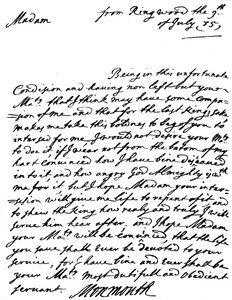 Madam
from Ringwood the 9th
of July 85
Being in this unfortunate
Condision and having non left but your
Matie that I think may have some compa-
sion of me and that for the last Kings sake
makes me take this boldnes to beg of you to
intersed for me I wold not desire your Matie
to doe it if I wear not from the botom of my
hart convinced how I have bine disceaved
in to it and how angry God Almighty is with
me for it but I hope Madam your inter-
session will give me life to repent of it and
to shew the King how realy and truly I will
serve him hear after, and I hope Madam
your Matie will be convinced that the life
you save shall ever be devoted to your
service, for I have bine and ever shall be
your Maties most dutifull and obedient
servant.
Monmouth